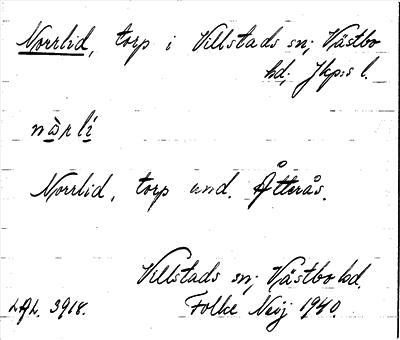 Norrlid, torp i Villstads sn; Västbo
hd; Jkps l.
nàrlí
Norrlid, torp und. Åtterås.
Villstads sn; Västbo hd.
3918. Folke 1940.